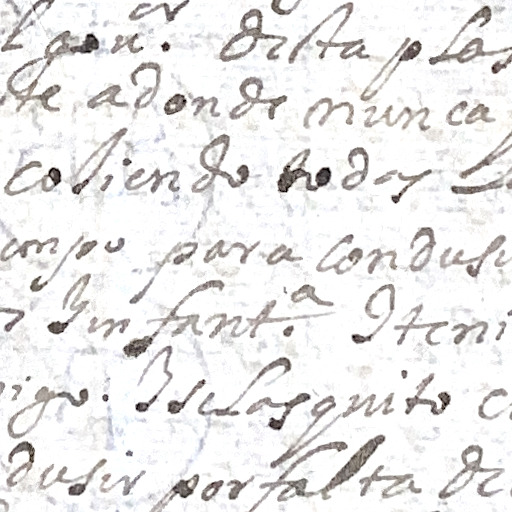 l gov.or dista plas
te adonde nunca
cojiendo todas L
canpo para condusi
Y infant.a Y teni
igo. Y se Las quito c
dusir por falta de